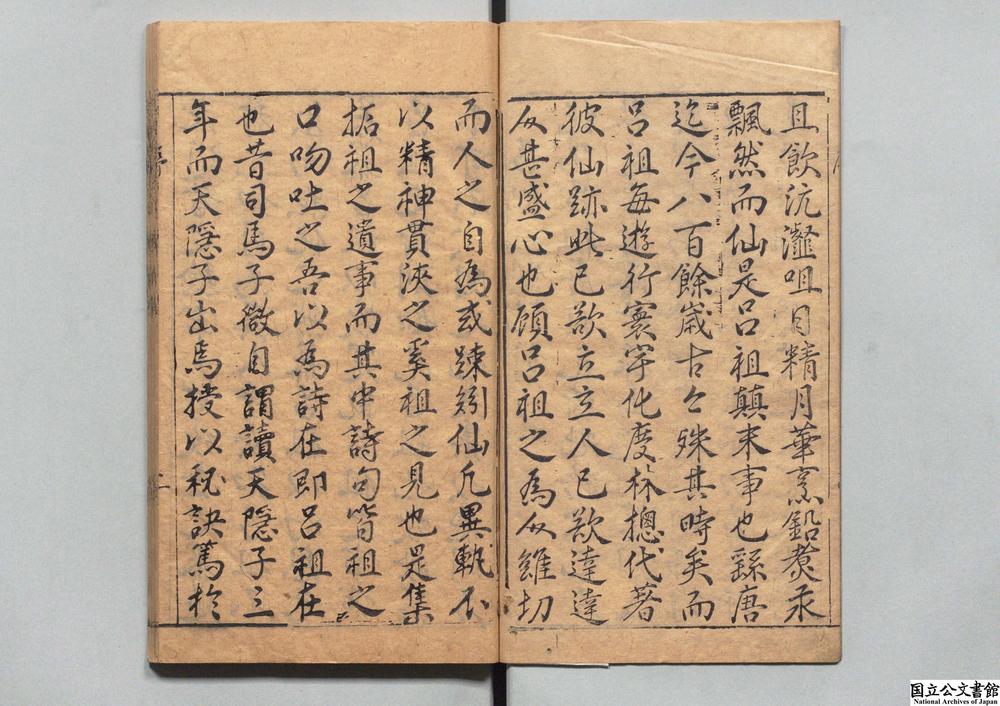 且飲沆瀣咀日精月華烹鉛煑汞
飄然而仙是呂祖顛末事也繇唐
迄今八百餘嵗古今殊其時矣而
呂祖每遊行寰宇化度林摠代著
彼仙跡此已欲立立人已欲達達
人甚盛心也顧呂祖之為人雖切
而人之自為或踈矧仙凡異軌不
以精神貫浹之奚祖之見也是集
掂祖之遺事而其中詩句皆祖之
口吻吐之吾以為詩在即呂祖在
也昔司馬子微自謂讀天隱子三
年而天隱子出焉授以秘訣篤於
序
二
国立公文書館
National Archives of Japan